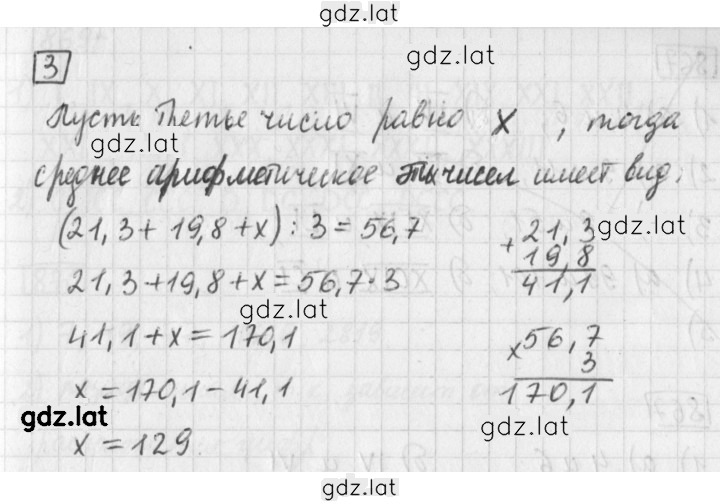 gdz.lat
3
gdz.lat
Пусть третье число равно x, тогда
gdz.lat
среднее арифметическое эти чисел имеет вид:
(21,3 + 19,8 + x) : 3 = 56,7
+ 21,3
gdz.lat
19,8
41,1
21,3 + 19,8 + x = 56,7 · 3
gdz.lat
41,1 + x = 170,1
x 56,7
3
170,1
x = 170,1 - 41,1
gdz.lat
gdz.lat
x = 129.
gdz.lat